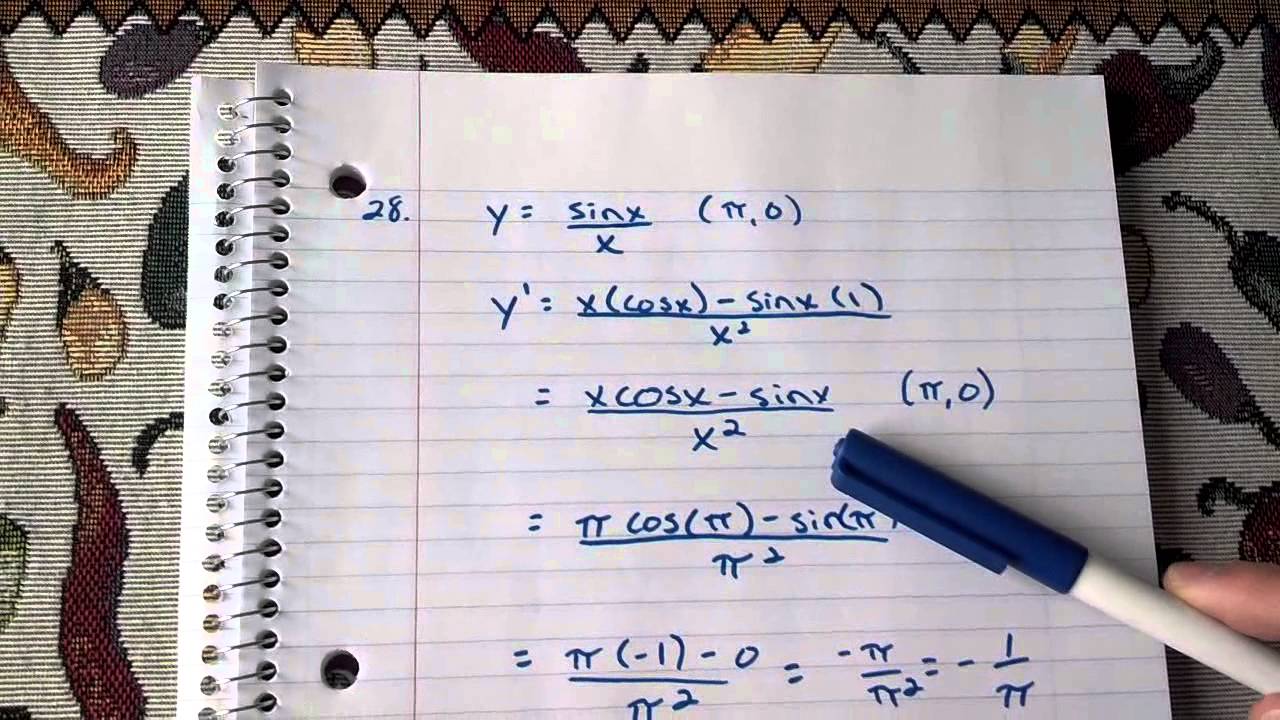 28. y = sinx/x (π,0)
y' = x(cosx) - sinx(1)/x²
= xcosx - sinx/x² (π,0)
= π cos(π) - sin(π)/π²
= π(-1) - 0/π² = -π/π² = - 1/π